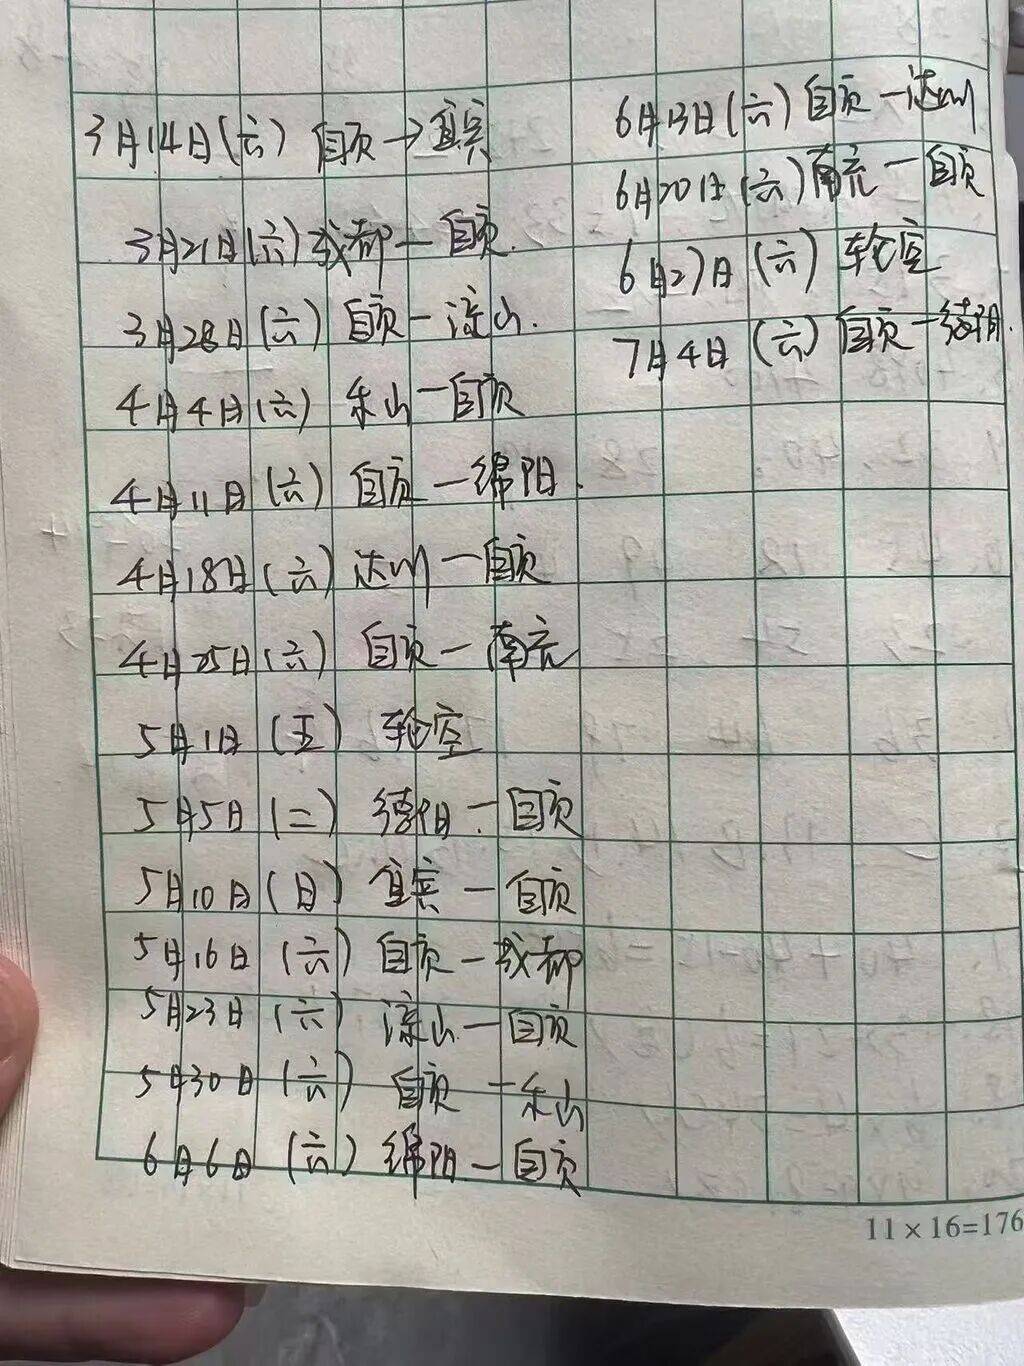 3月14日(六) 自贡→宜宾
3月21日(六) 成都—自贡.
3月28日(六) 自贡—凉山.
4月4日(六) 乐山—自贡
4月11日(六) 自贡—绵阳.
4月18日(六) 达州—自贡
4月25日(六) 自贡—南充
5月1日(五) 轮空
5月5日(二) 德阳—自贡
5月10日(日) 宜宾—自贡
5月16日(六) 自贡—成都
5月23日(六) 凉山—自贡
5月30日(六) 自贡—乐山
6月6日(六) 绵阳—自贡
6月13日(六) 自贡—达州
6月20日(六) 南充—自贡
6月27日(六) 轮空
7月4日(六) 自贡—德阳.
11×16=176